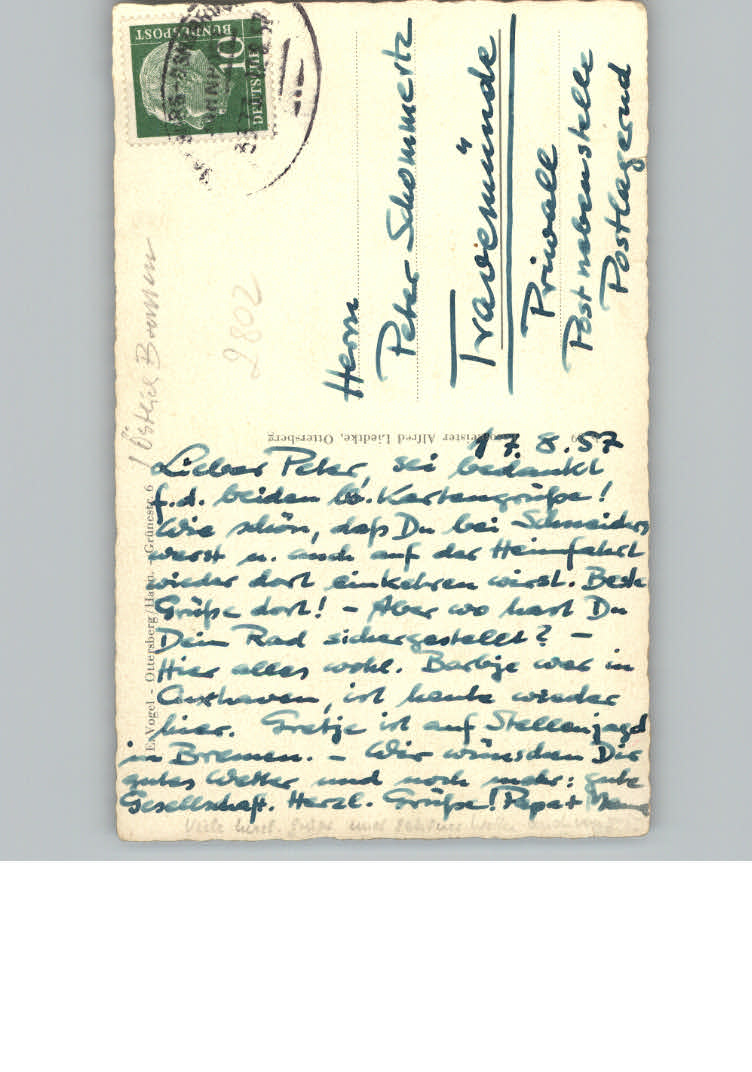 17.8.57
Lieber Peter, sei bedankt
f. d. beiden lb. Kartengrüße!
Wie schön, daß Du bei Schneiders
warst u. auch auf der Heimfahrt
wieder dort einkehren wirst. Beste
Grüße dort! – Aber wo hast Du
Dein Rad sichergestellt? –
Hier alles wohl. Barbje war in
Cuxhaven, ist heute wieder
hier. Gretje ist auf Stellenjagd
in Bremen. – Wir wünschen Dir
gutes Wetter und noch mehr: gute
Gesellschaft. Herzl. Grüße! Papa + Mama
Viele herzl. Grüße und schönes Wetter
Herrn
Peter Schommertz
Travemünde
Priwall
Postnebenstelle
Postlagernd
Östlich Bremen
2802
DEUTSCHE
BUNDESPOST
10
meister Alfred Liedtke, Ottersberg
E. Vogel - Ottersberg/Hann. - Grünestr. 6